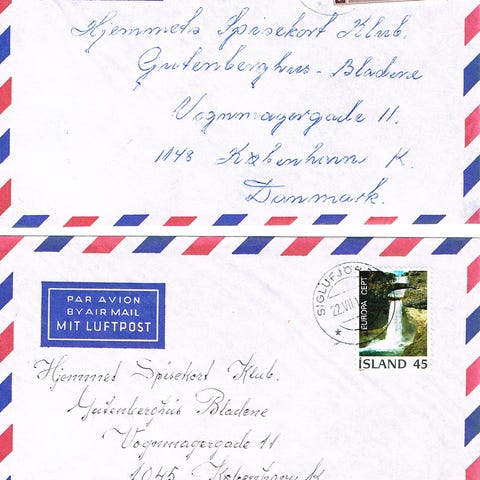 Hjemmets Spisekort Klub.
Gutenberghus - Bladene
Vognmagergade 11.
1148 København K.
Danmark.
PAR AVION
BY AIR MAIL
MIT LUFTPOST
SIGLUFJÖR
22.VII.
EUROPA CEPT
ÍSLAND 45
Hjemmet Spisekort Klub.
Gutenberghús Bladene
Vognmagergade 11
1045 København K